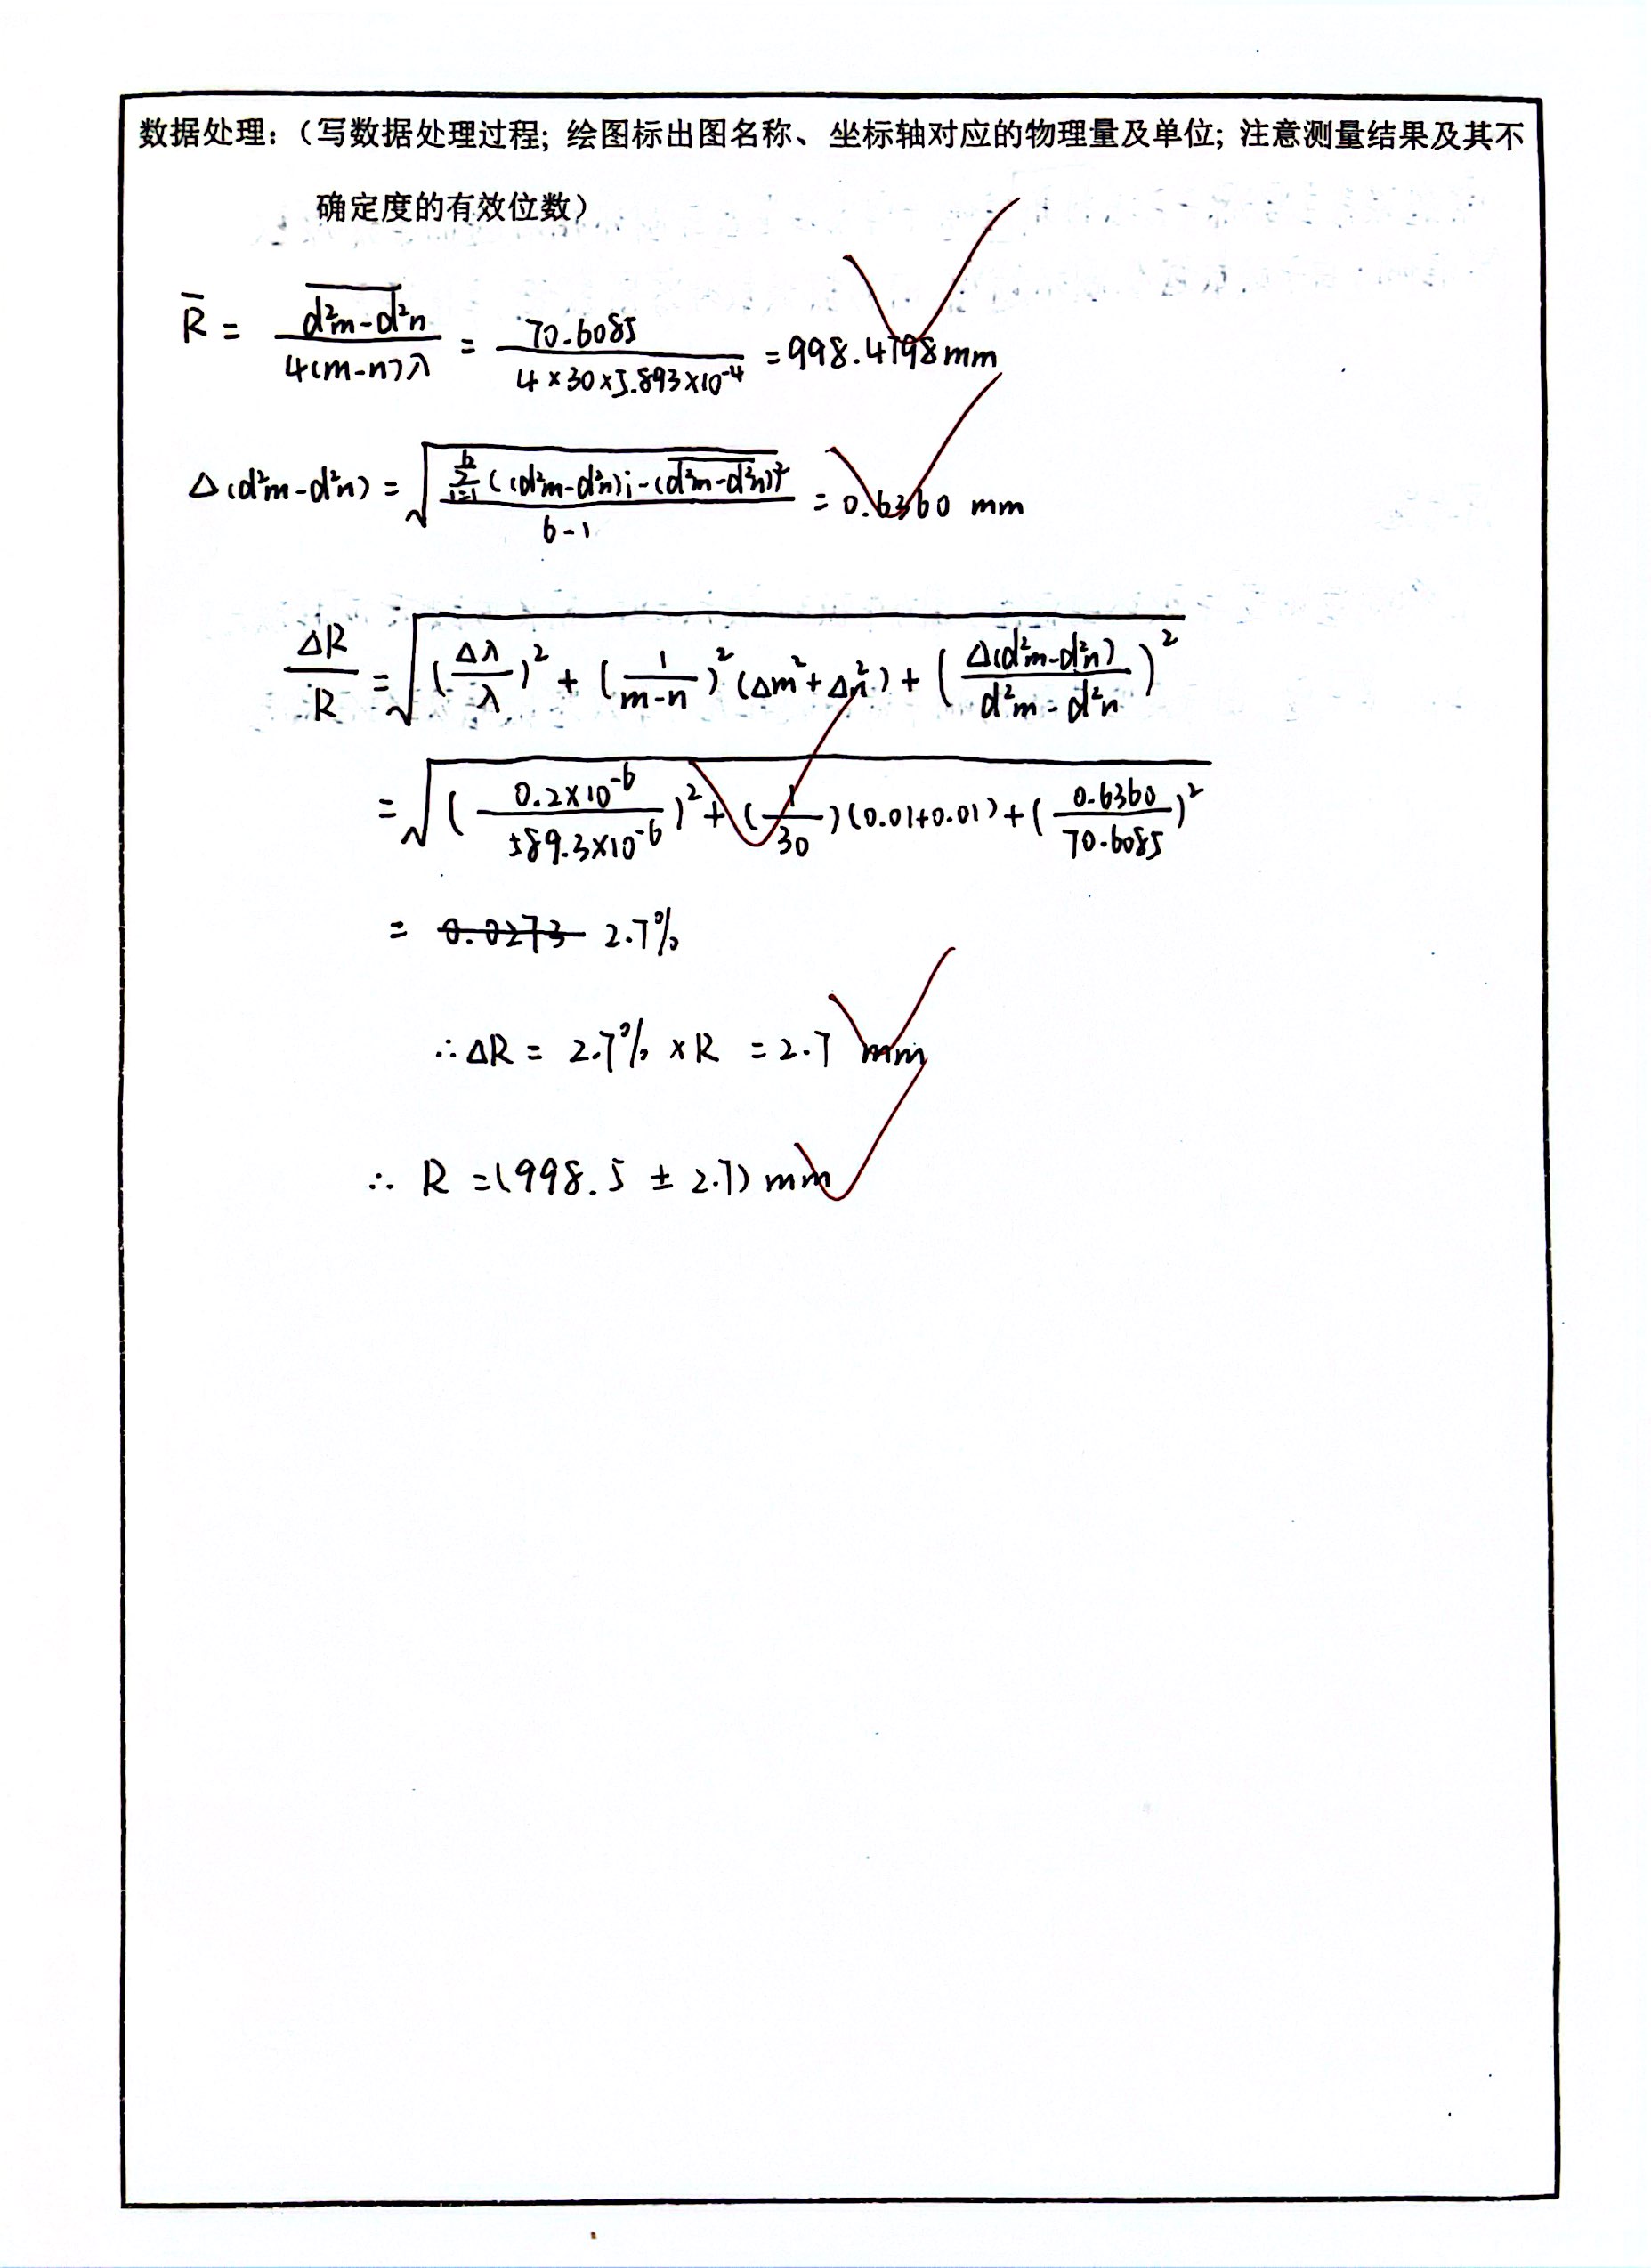 数据处理:(写数据处理过程; 绘图标出图名称、坐标轴对应的物理量及单位; 注意测量结果及其不
确定度的有效位数)
R̄ = \frac{\overline{d²m-d²n}}{4(m-n)λ} = \frac{70.6085}{4×30×5.893×10⁻⁴} = 998.4798mm
Δ(d²m-d²n) = \sqrt{\frac{\sum_{i=1}^{6}((d²m-d²n)i-(\overline{d²m-d²n}))²}{6-1}} = 0.6360 mm
\frac{ΔR}{R} = \sqrt{(\frac{Δλ}{λ})² + (\frac{1}{m-n})²(Δm²+Δn²) + (\frac{Δ(d²m-d²n)}{d²m-d²n})²}
= \sqrt{(\frac{0.2×10⁻⁶}{589.3×10⁻⁶})² + (\frac{1}{30})(0.01+0.01) + (\frac{0.6360}{70.6085})²}
= 0.0273 2.7%
∴ΔR = 2.7% ×R = 2.7 mm
∴ R =(998.5 ± 2.7) mm